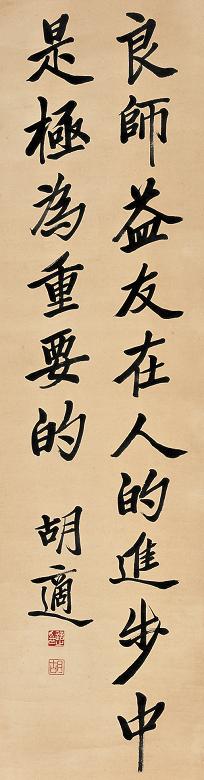 良師益友在人的進步中
是極為重要的
胡適